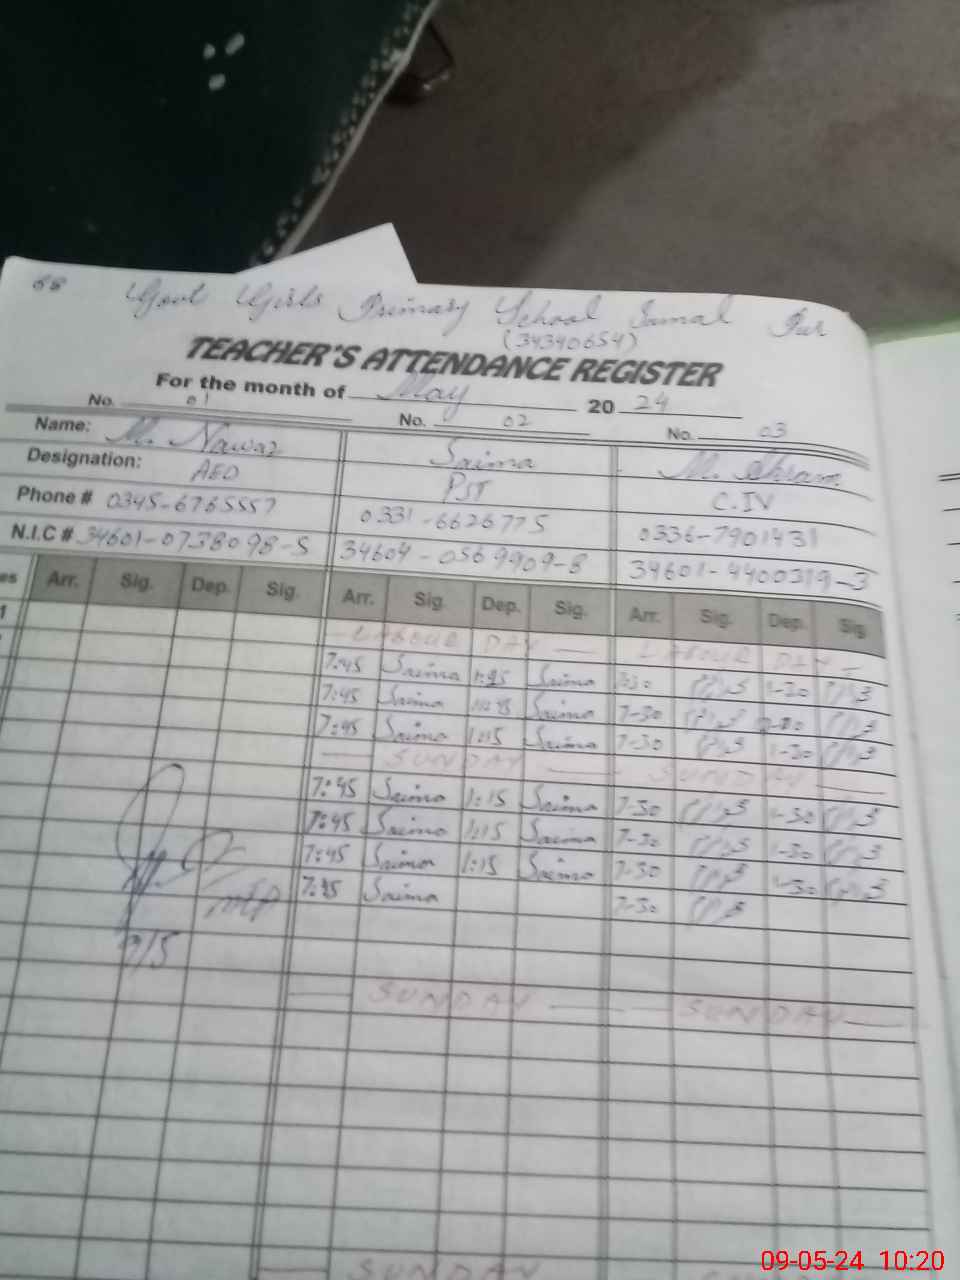 68 Govt Girls Primary School Jamal Pur
(34340654)
TEACHER'S ATTENDANCE REGISTER
For the month of May 2024
No. 01 No. 02 No. 03
Name: M. Nawaz Saima M. Ikram
Designation: AEO PST C.IV
Phone # 0345-6765557 0331-6626775 0336-7901431
N.I.C # 34601-0738098-5 34604-0569909-8 34601-4400319-3
es Arr. Sig. Dep. Sig. Arr. Sig. Dep. Sig. Arr. Sig. Dep. Sig
1 LABOUR DAY LABOUR DAY
7:45 Saima Saima 7-30 1-30
7:45 Saima Saima 7-30
7:45 Saima 1:15 Saima 7-30 1-30
SUNDAY SUNDAY
7:45 Saima 1:15 Saima 7-30 1-30
7:45 Saima 1:15 Saima 7-30 1-30
7:45 Saima 1:15 Saima 7-30 1-30
7:45 Saima 7-30
9/5
SUNDAY SUNDAY
SUNDAY
09-05-24 10:20